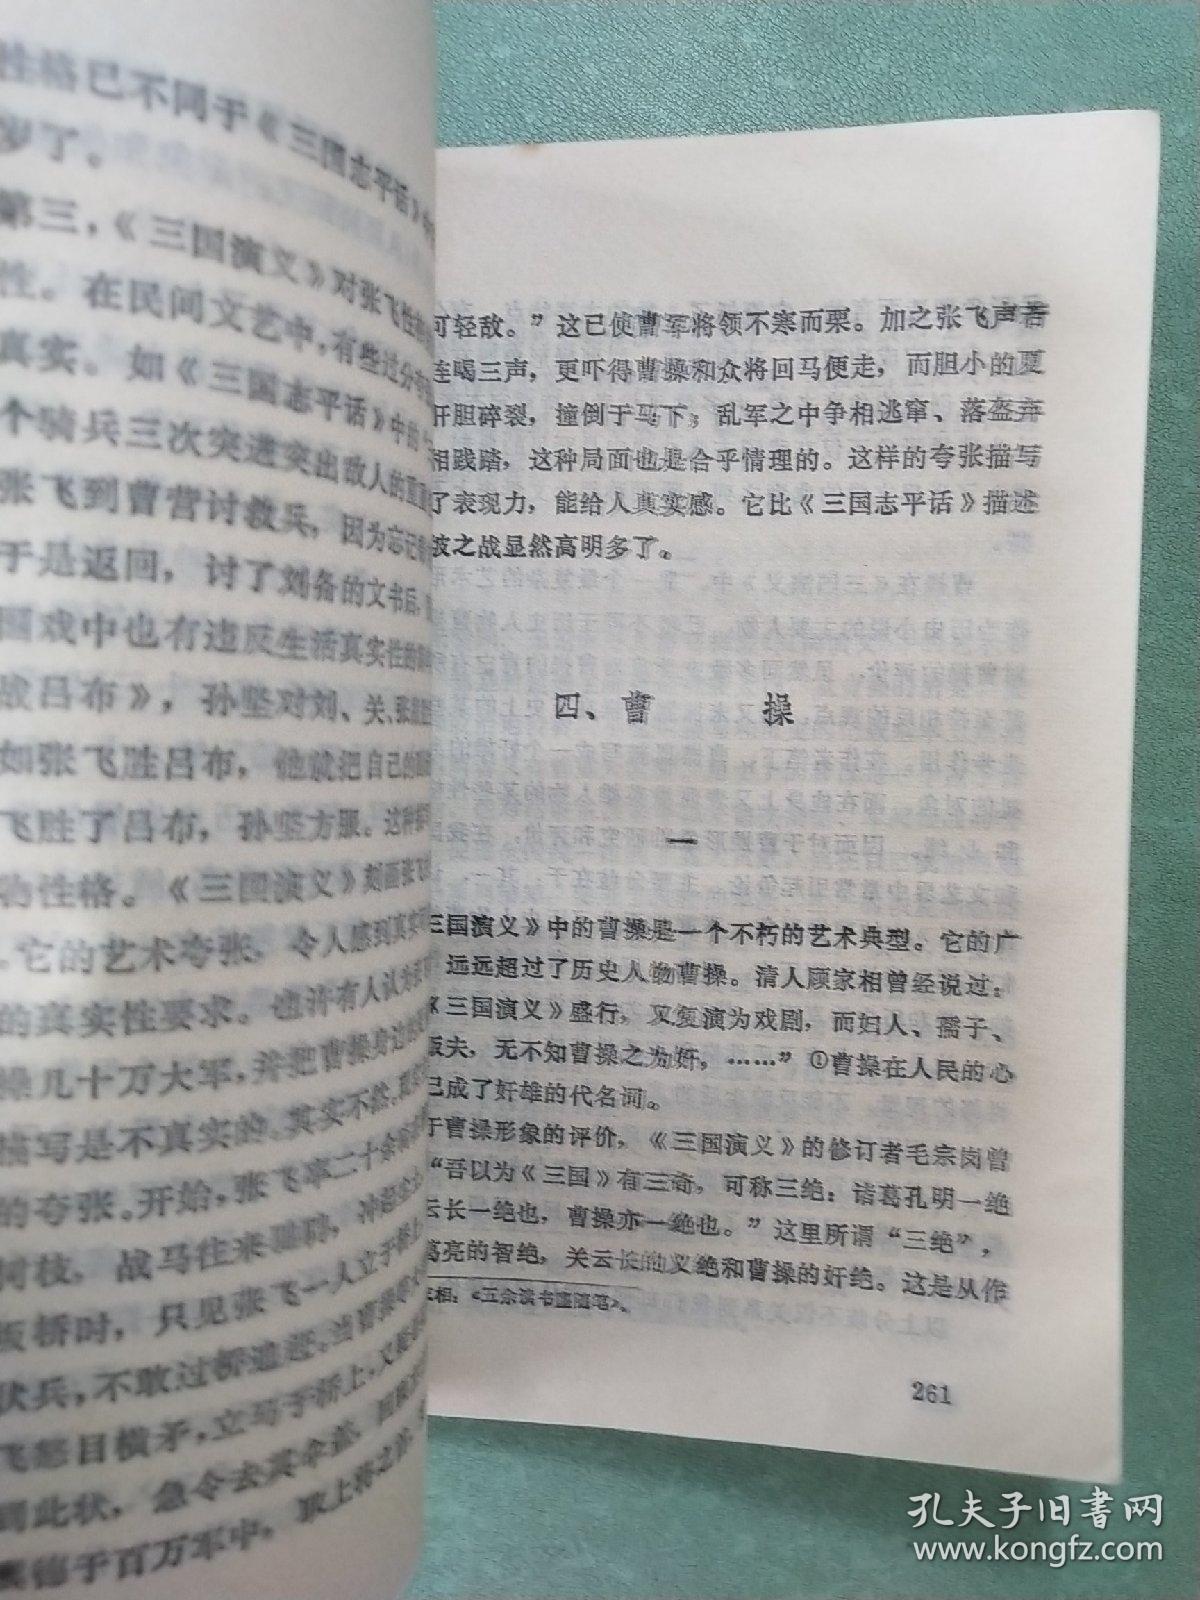 性格已不同于《三国志平话》
岁了。
第三，《三国演义》对张飞性
性。在民间文艺中，有些过分
真实。如《三国志平话》中的
个骑兵三次突进突出敌人的重
张飞到曹营讨救兵，因为忘记
于是返回，讨了刘备的文书后，
国戏中也有违反生活真实性的
战吕布》，孙坚对刘、关、张
如张飞胜吕布，他就把自己的
飞胜了吕布，孙坚方服。这种
物性格。《三国演义》刻画张飞
。它的艺术夸张，令人感到真实
的真实性要求。也许有人认为
操几十万大军，并把曹操身边
描写是不真实的。其实不然。
的夸张。开始，张飞率二十余
树枝，战马往来驰骋，冲起
板桥时，只见张飞一人立于桥上，
伏兵，不敢过桥追赶。当曹操
飞怒目横矛，立马于桥上，又
到此状，急令去其伞盖，回顾
翼德于百万军中，取上将之首，
可轻敌。”这已使曹军将领不寒而栗。加之张飞声若
连喝三声，更吓得曹操和众将回马便走，而胆小的夏
肝胆碎裂，撞倒于马下，乱军之中争相逃窜、落盔弃
相践踏，这种局面也是合乎情理的。这样的夸张描写
了表现力，能给人真实感。它比《三国志平话》描述
坡之战显然高明多了。
四、曹 操
一
三国演义》中的曹操是一个不朽的艺术典型。它的广
，远远超过了历史人物曹操。清人顾家相曾经说过：
《三国演义》盛行，又复演为戏剧，而妇人、孺子、
贩夫，无不知曹操之为奸，……”①曹操在人民的心
已成了奸雄的代名词。
于曹操形象的评价，《三国演义》的修订者毛宗岗曾
“吾以为《三国》有三奇，可称三绝：诸葛孔明一绝
云长一绝也，曹操亦一绝也。”这里所谓“三绝”，
葛亮的智绝，关云长的义绝和曹操的奸绝。这是从作
家相：《五余读书廛随笔》。
261
孔夫子旧书网
www.kongfz.com